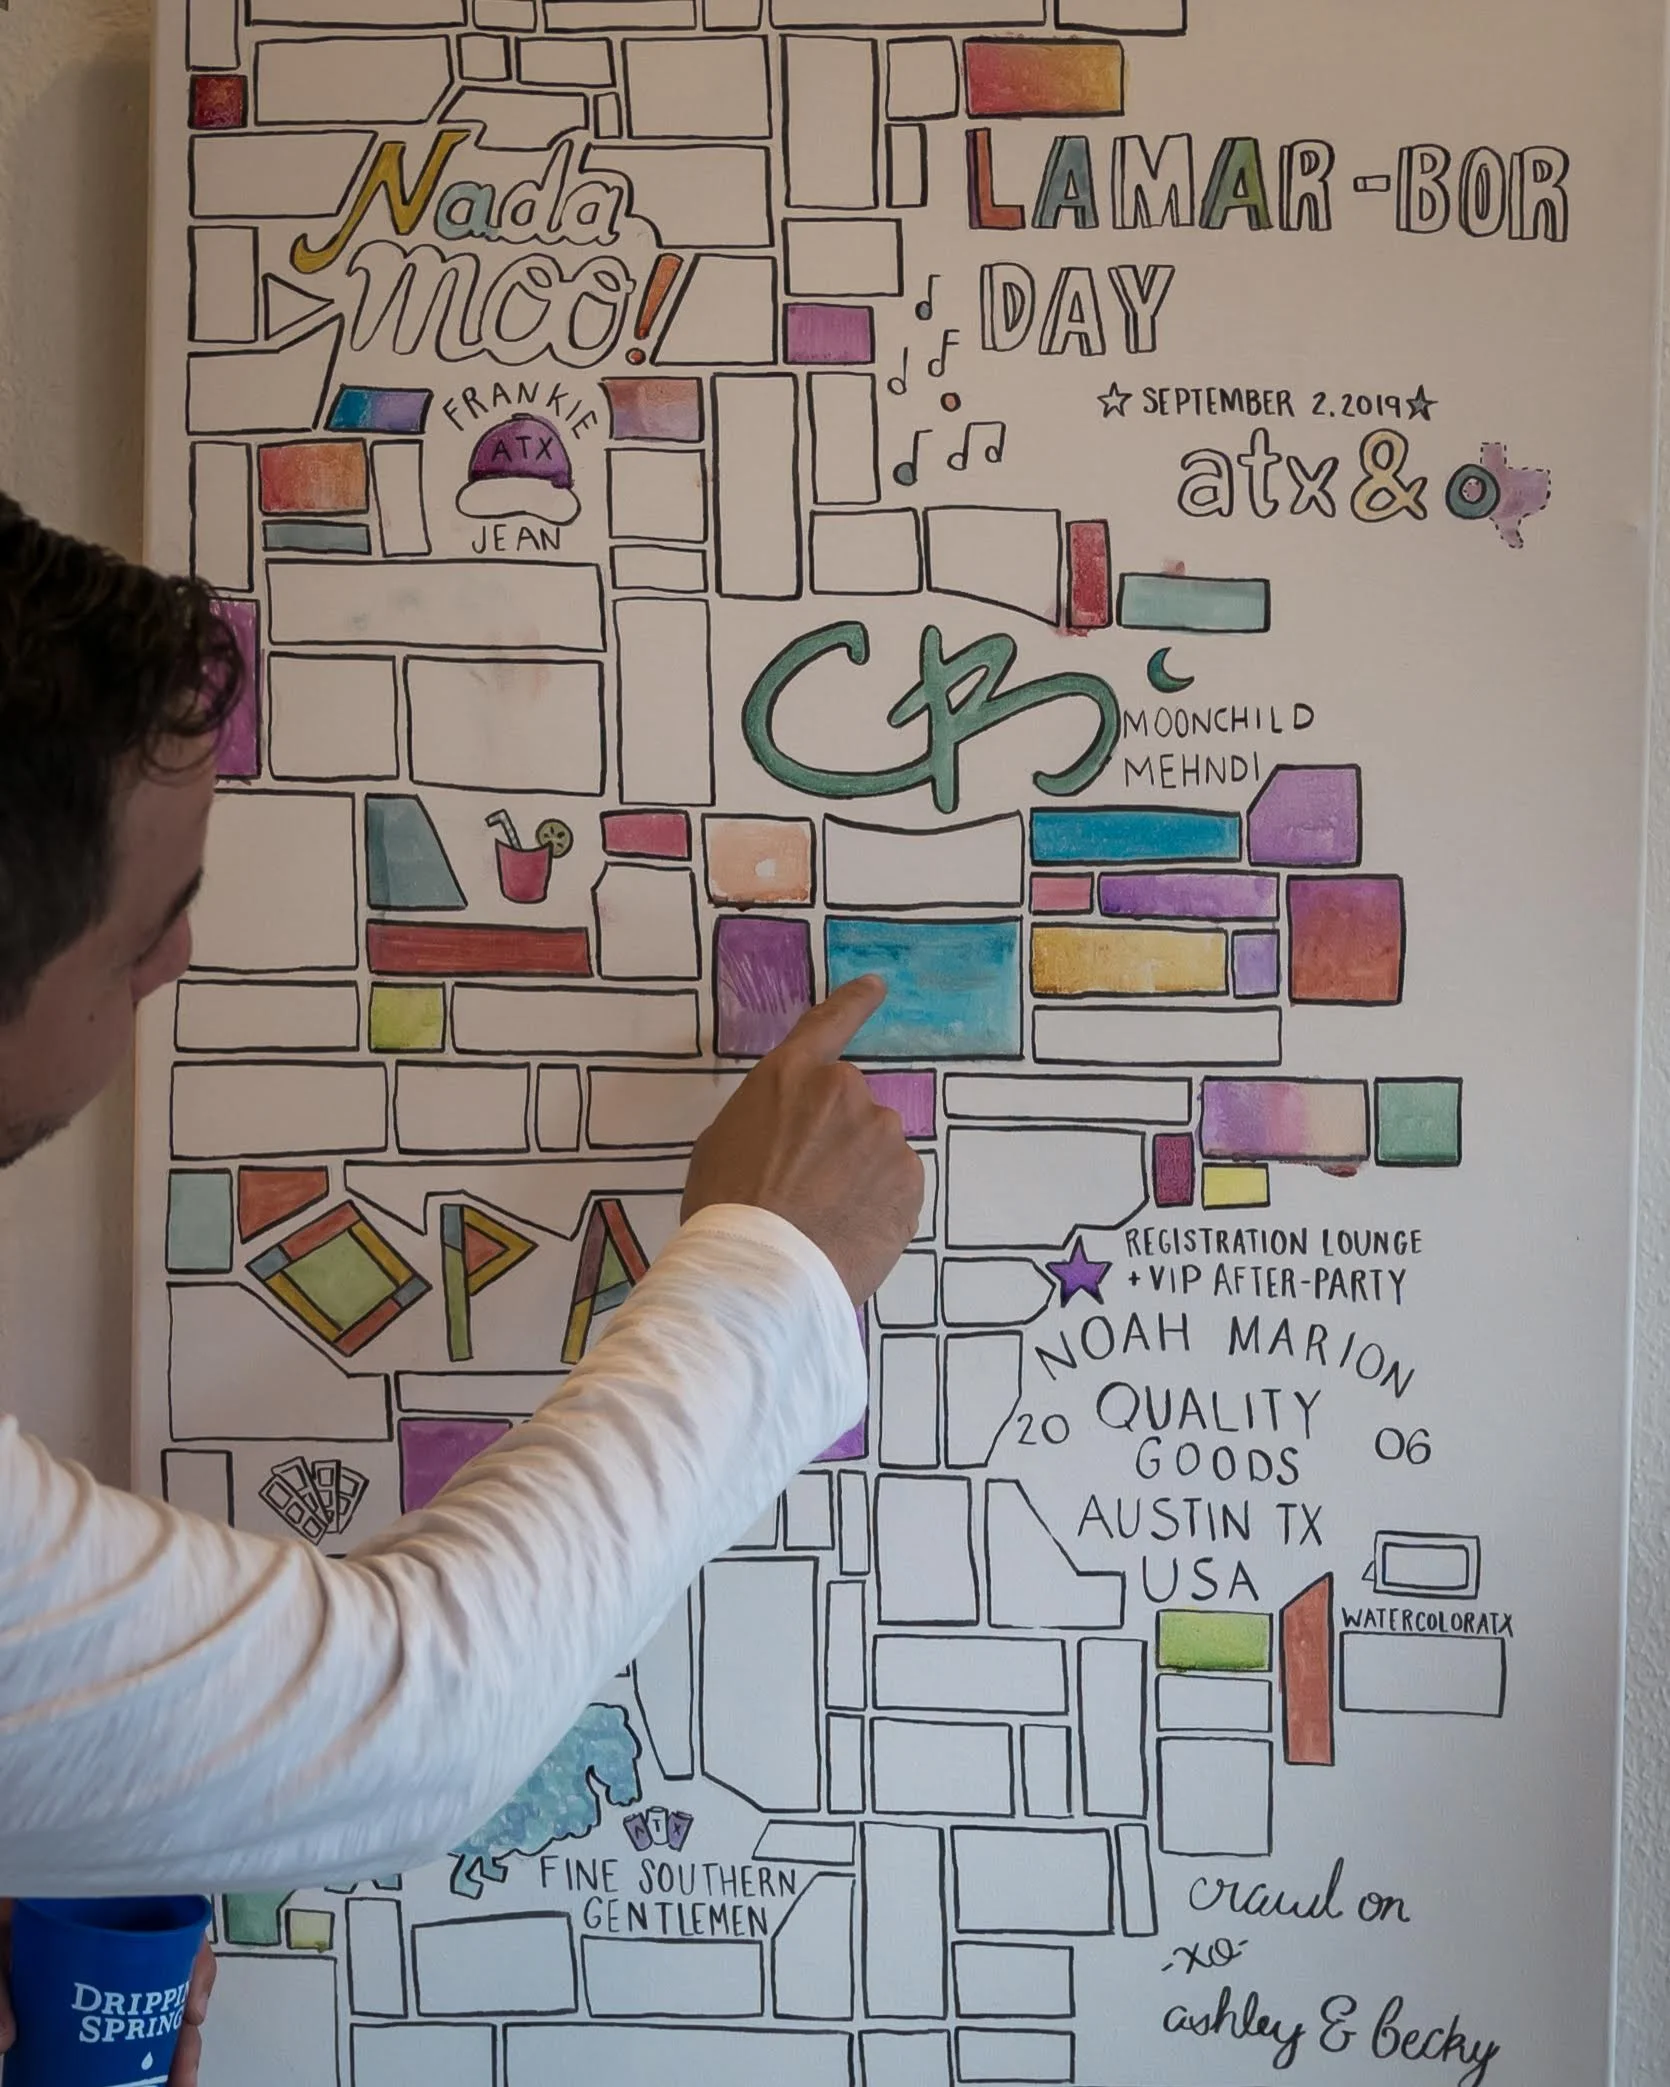 Nada
moo!
LAMAR-BOR
DAY
☆ SEPTEMBER 2.2019 ☆
atx&o
FRANKIE
ATX
JEAN
CB
MOONCHILD
MEHNDI
OPA
REGISTRATION LOUNGE
+ VIP AFTER-PARTY
NOAH MARION
QUALITY
20 GOODS 06
AUSTIN TX
USA
WATERCOLORATX
ATX
FINE SOUTHERN
GENTLEMEN
crawl on
-xo-
ashley & becky
DRIPPIN
SPRING